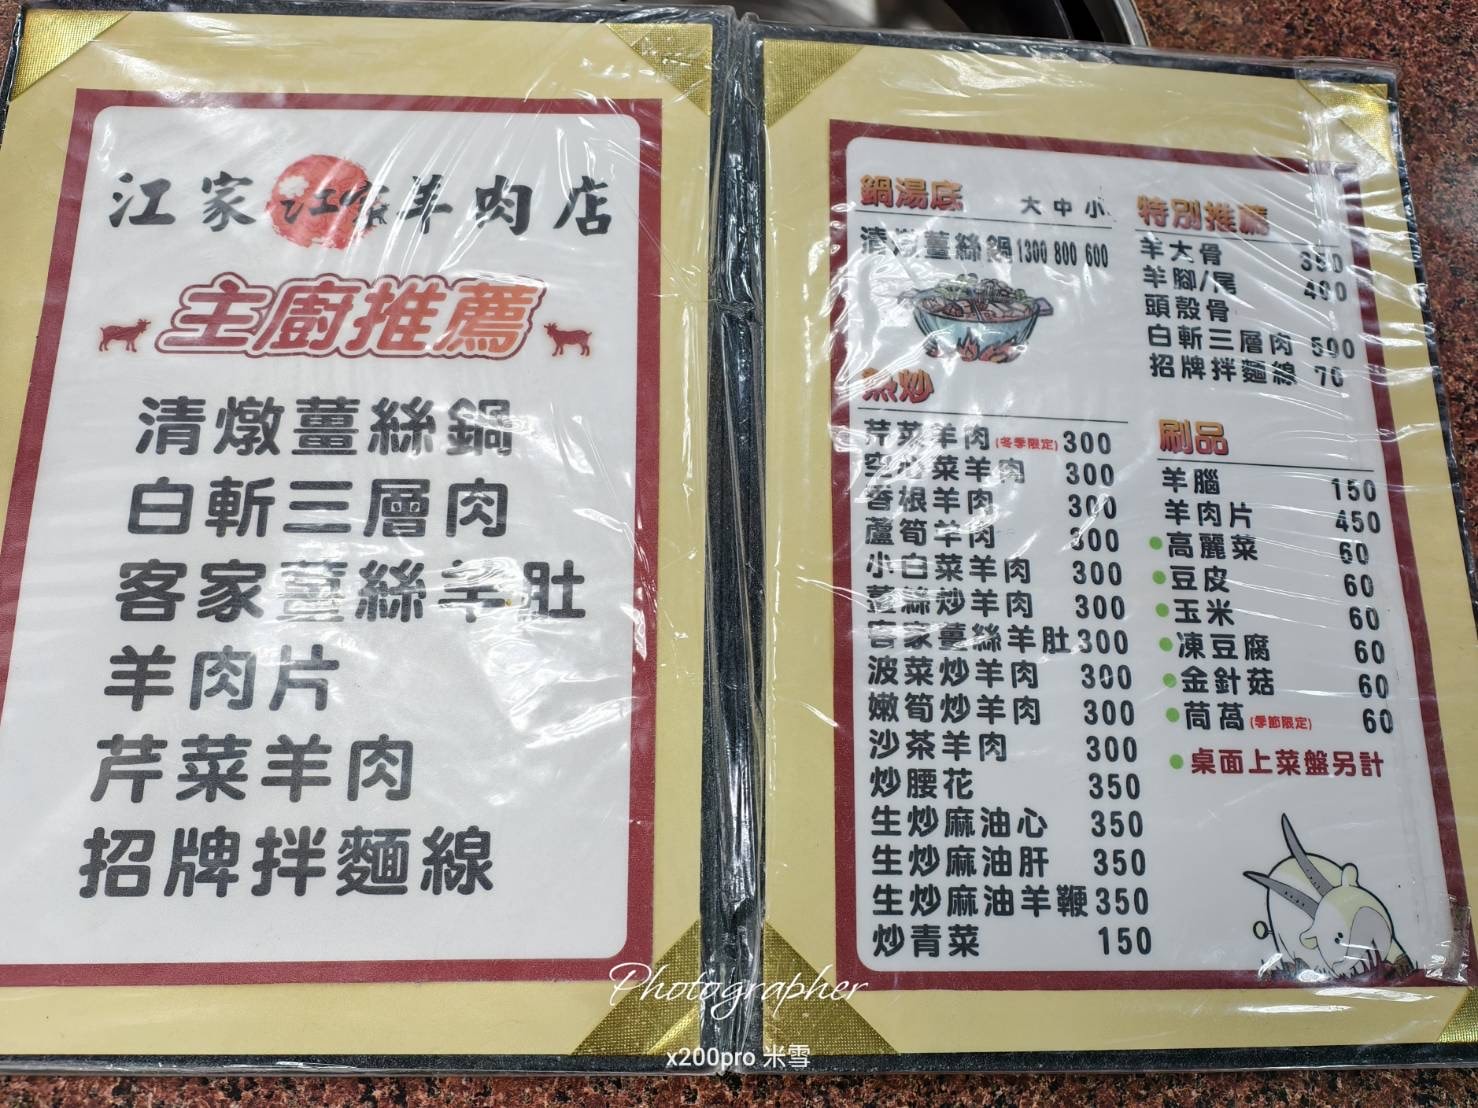 江家 江家 羊肉店
主廚推薦
清燉薑絲鍋
白斬三層肉
客家薑絲羊肚
羊肉片
芹菜羊肉
招牌拌麵線
鍋湯底 大 中 小
清燉薑絲鍋 1300 800 600
熱炒
芹菜羊肉 (冬季限定) 300
空心菜羊肉 300
香根羊肉 300
蘆筍羊肉 300
小白菜羊肉 300
薑絲炒羊肉 300
客家薑絲羊肚 300
波菜炒羊肉 300
嫩筍炒羊肉 300
沙茶羊肉 300
炒腰花 350
生炒麻油心 350
生炒麻油肝 350
生炒麻油羊鞭 350
炒青菜 150
特別推薦
羊大骨 350
羊腳/尾 400
頭殼骨
白斬三層肉 500
招牌拌麵線 70
刷品
羊腦 150
羊肉片 450
高麗菜 60
豆皮 60
玉米 60
凍豆腐 60
金針菇 60
茼萵 (季節限定) 60
桌面上菜盤另計
Photographer
x200pro 米雪